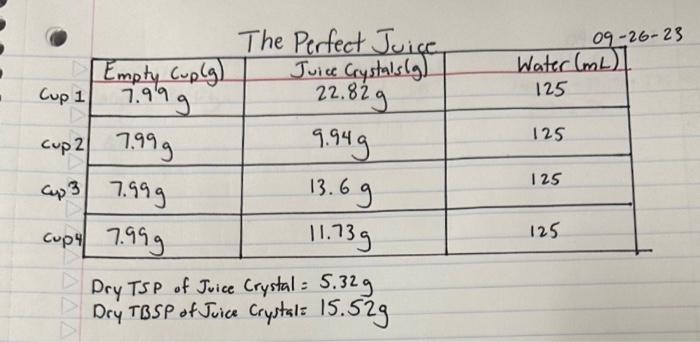 The Perfect Juice 09-26-23
Empty Cup(g) Juice Crystals(g) Water (mL)
Cup 1 7.99 g 22.82 g 125
Cup 2 7.99 g 9.94 g 125
Cup 3 7.99 g 13.6 g 125
Cup 4 7.99 g 11.73 g 125
Dry TSP of Juice Crystal = 5.32 g
Dry TBSP of Juice Crystal = 15.52 g